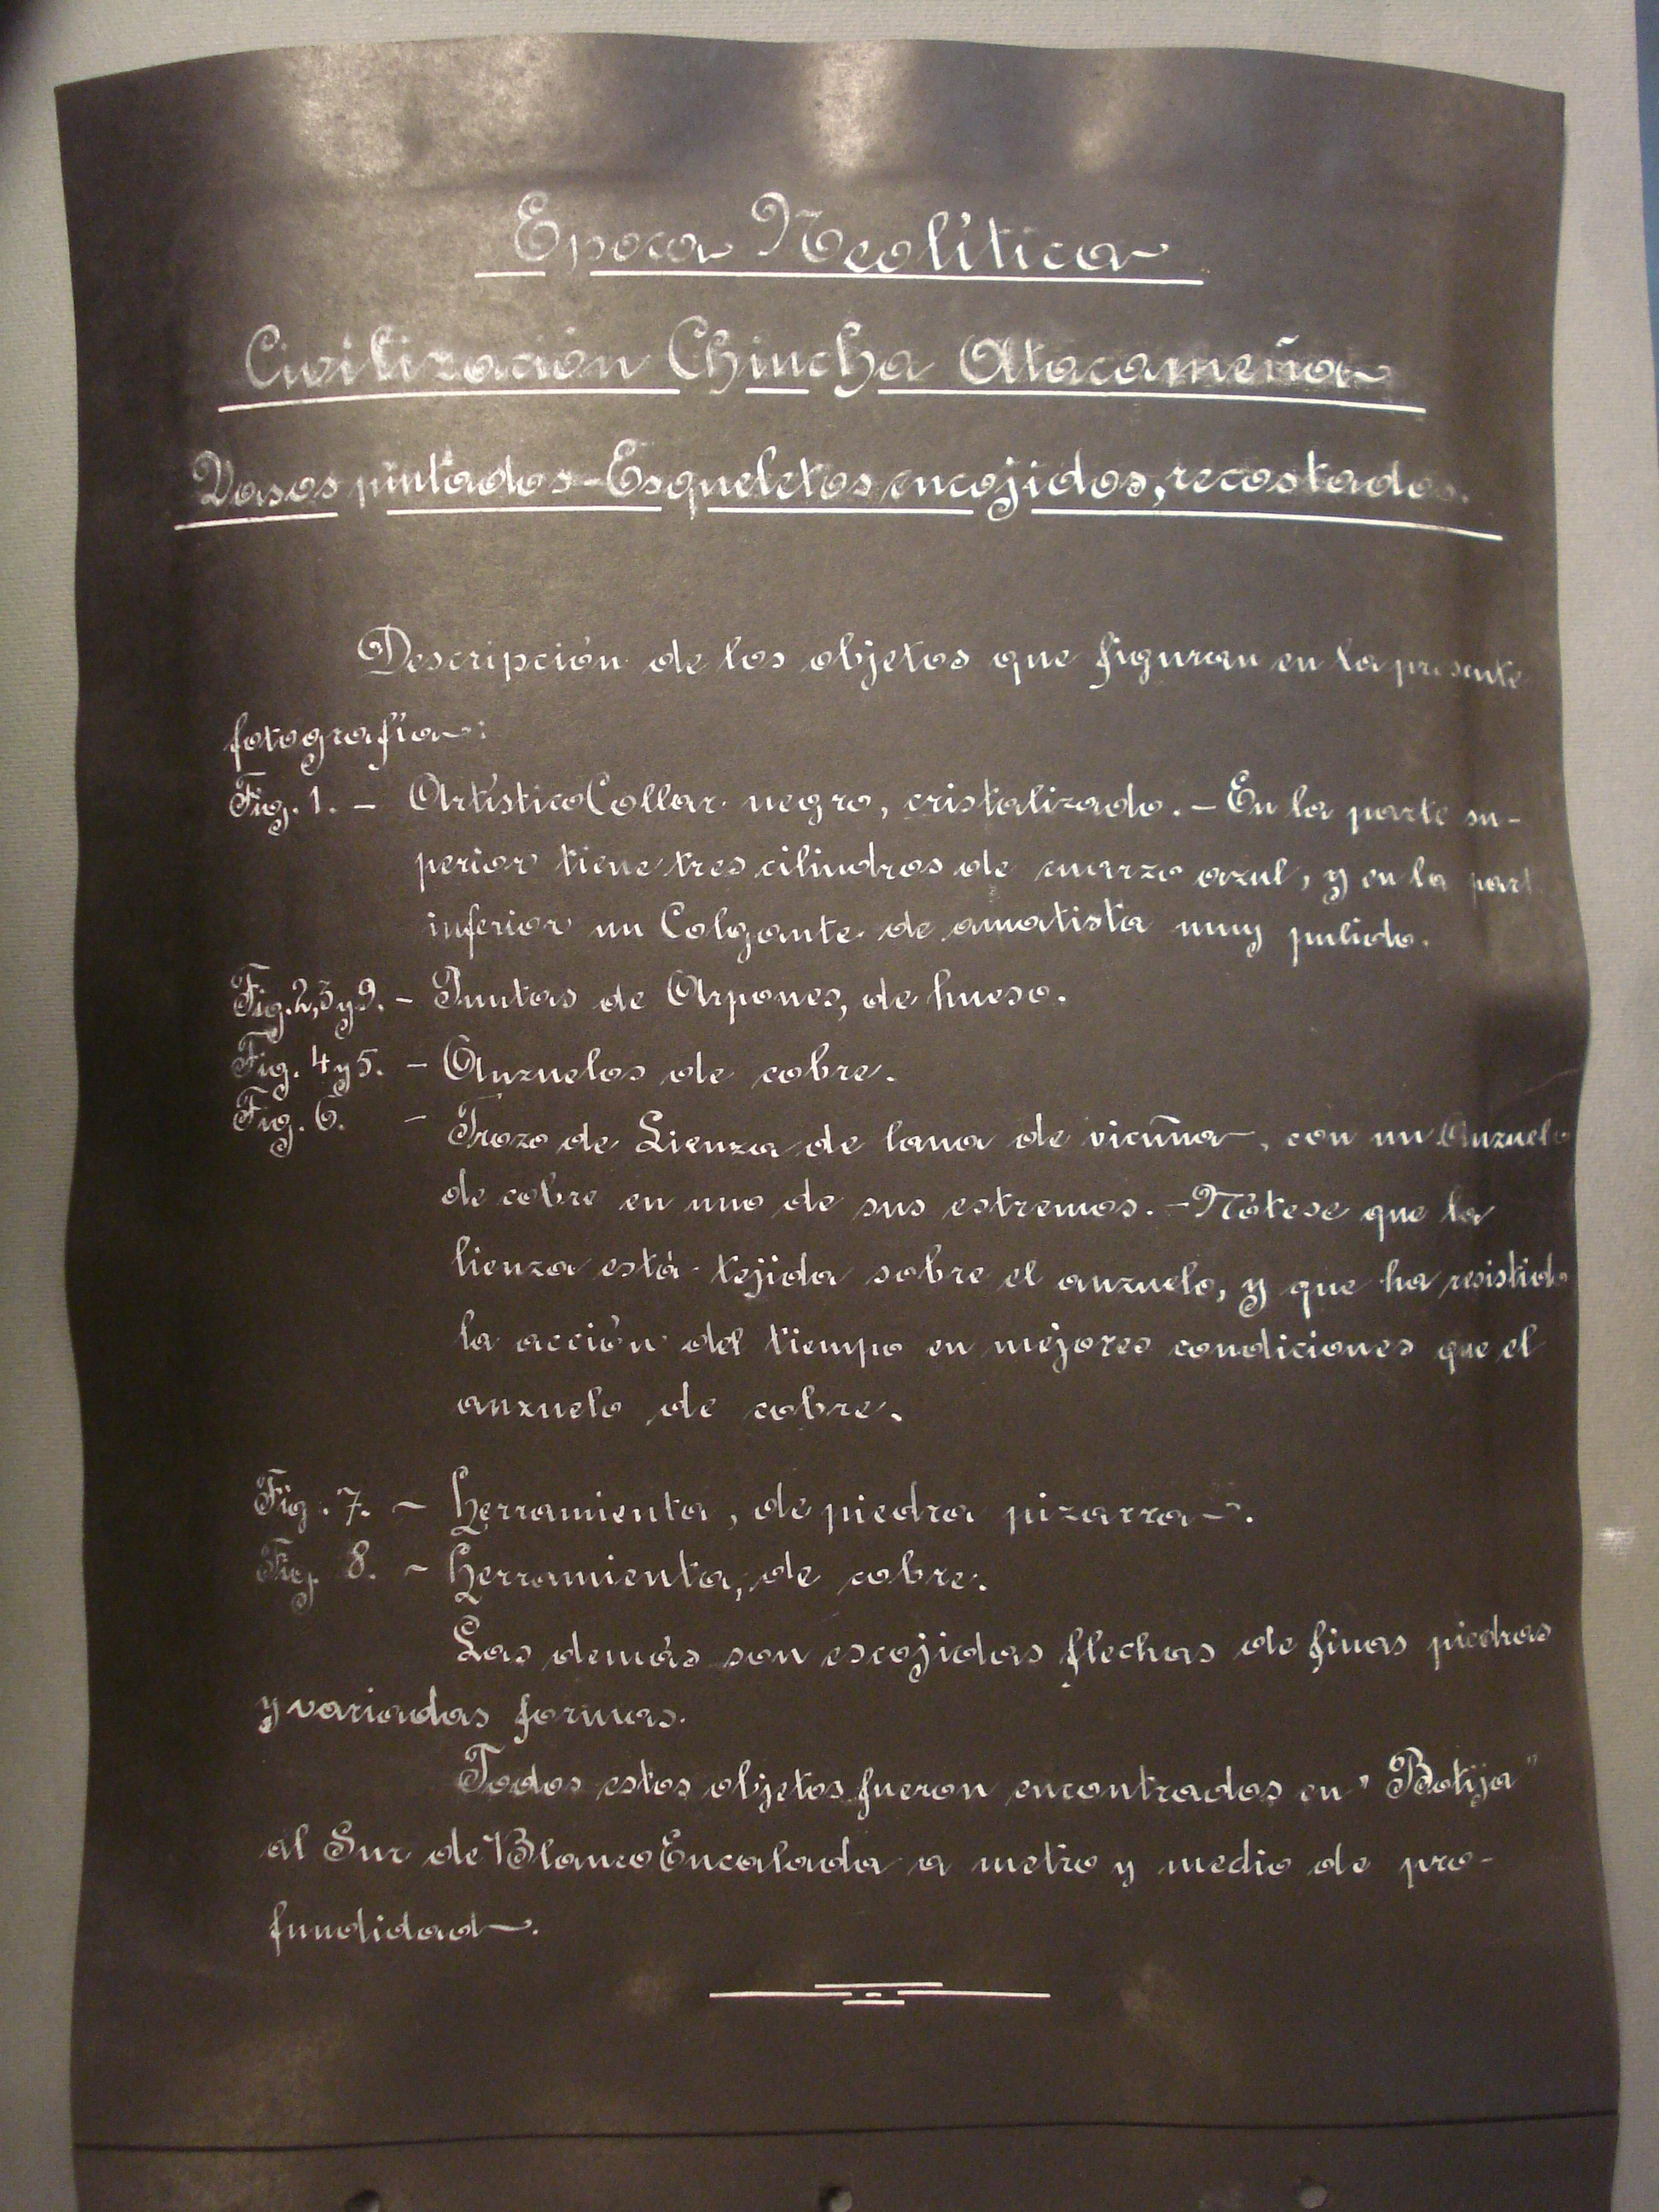 Epoca Neolítica
Civilización Chincha Atacameña
Vasos pintados - Esqueletos encojidos, recostados.
Descripción de los objetos que figuran en la presente
fotografía:
Fig. 1. - Artístico Collar negro, cristalizado. - En la parte su-
perior tiene tres cilindros de cuarzo azul, y en la part
inferior un Colgante de amatista muy pulido.
Fig. 2, 3 y 9. - Puntas de Arpones, de hueso.
Fig. 4 y 5. - Anzuelos de cobre.
Fig. 6. - Trozo de Lienza de lana de vicuña, con un Anzuelo
de cobre en uno de sus estremos. - Nótese que la
lienza está tejida sobre el anzuelo, y que ha resistido
la acción del tiempo en mejores condiciones que el
anzuelo de cobre.
Fig. 7. - Herramienta, de piedra pizarra.
Fig. 8. - Herramienta, de cobre.
Las demás son escojidas flechas de finas piedras
y variadas formas.
Todos estos objetos fueron encontrados en "Botija"
al Sur de Blanco Encalada a metro y medio de pro-
fundidad.